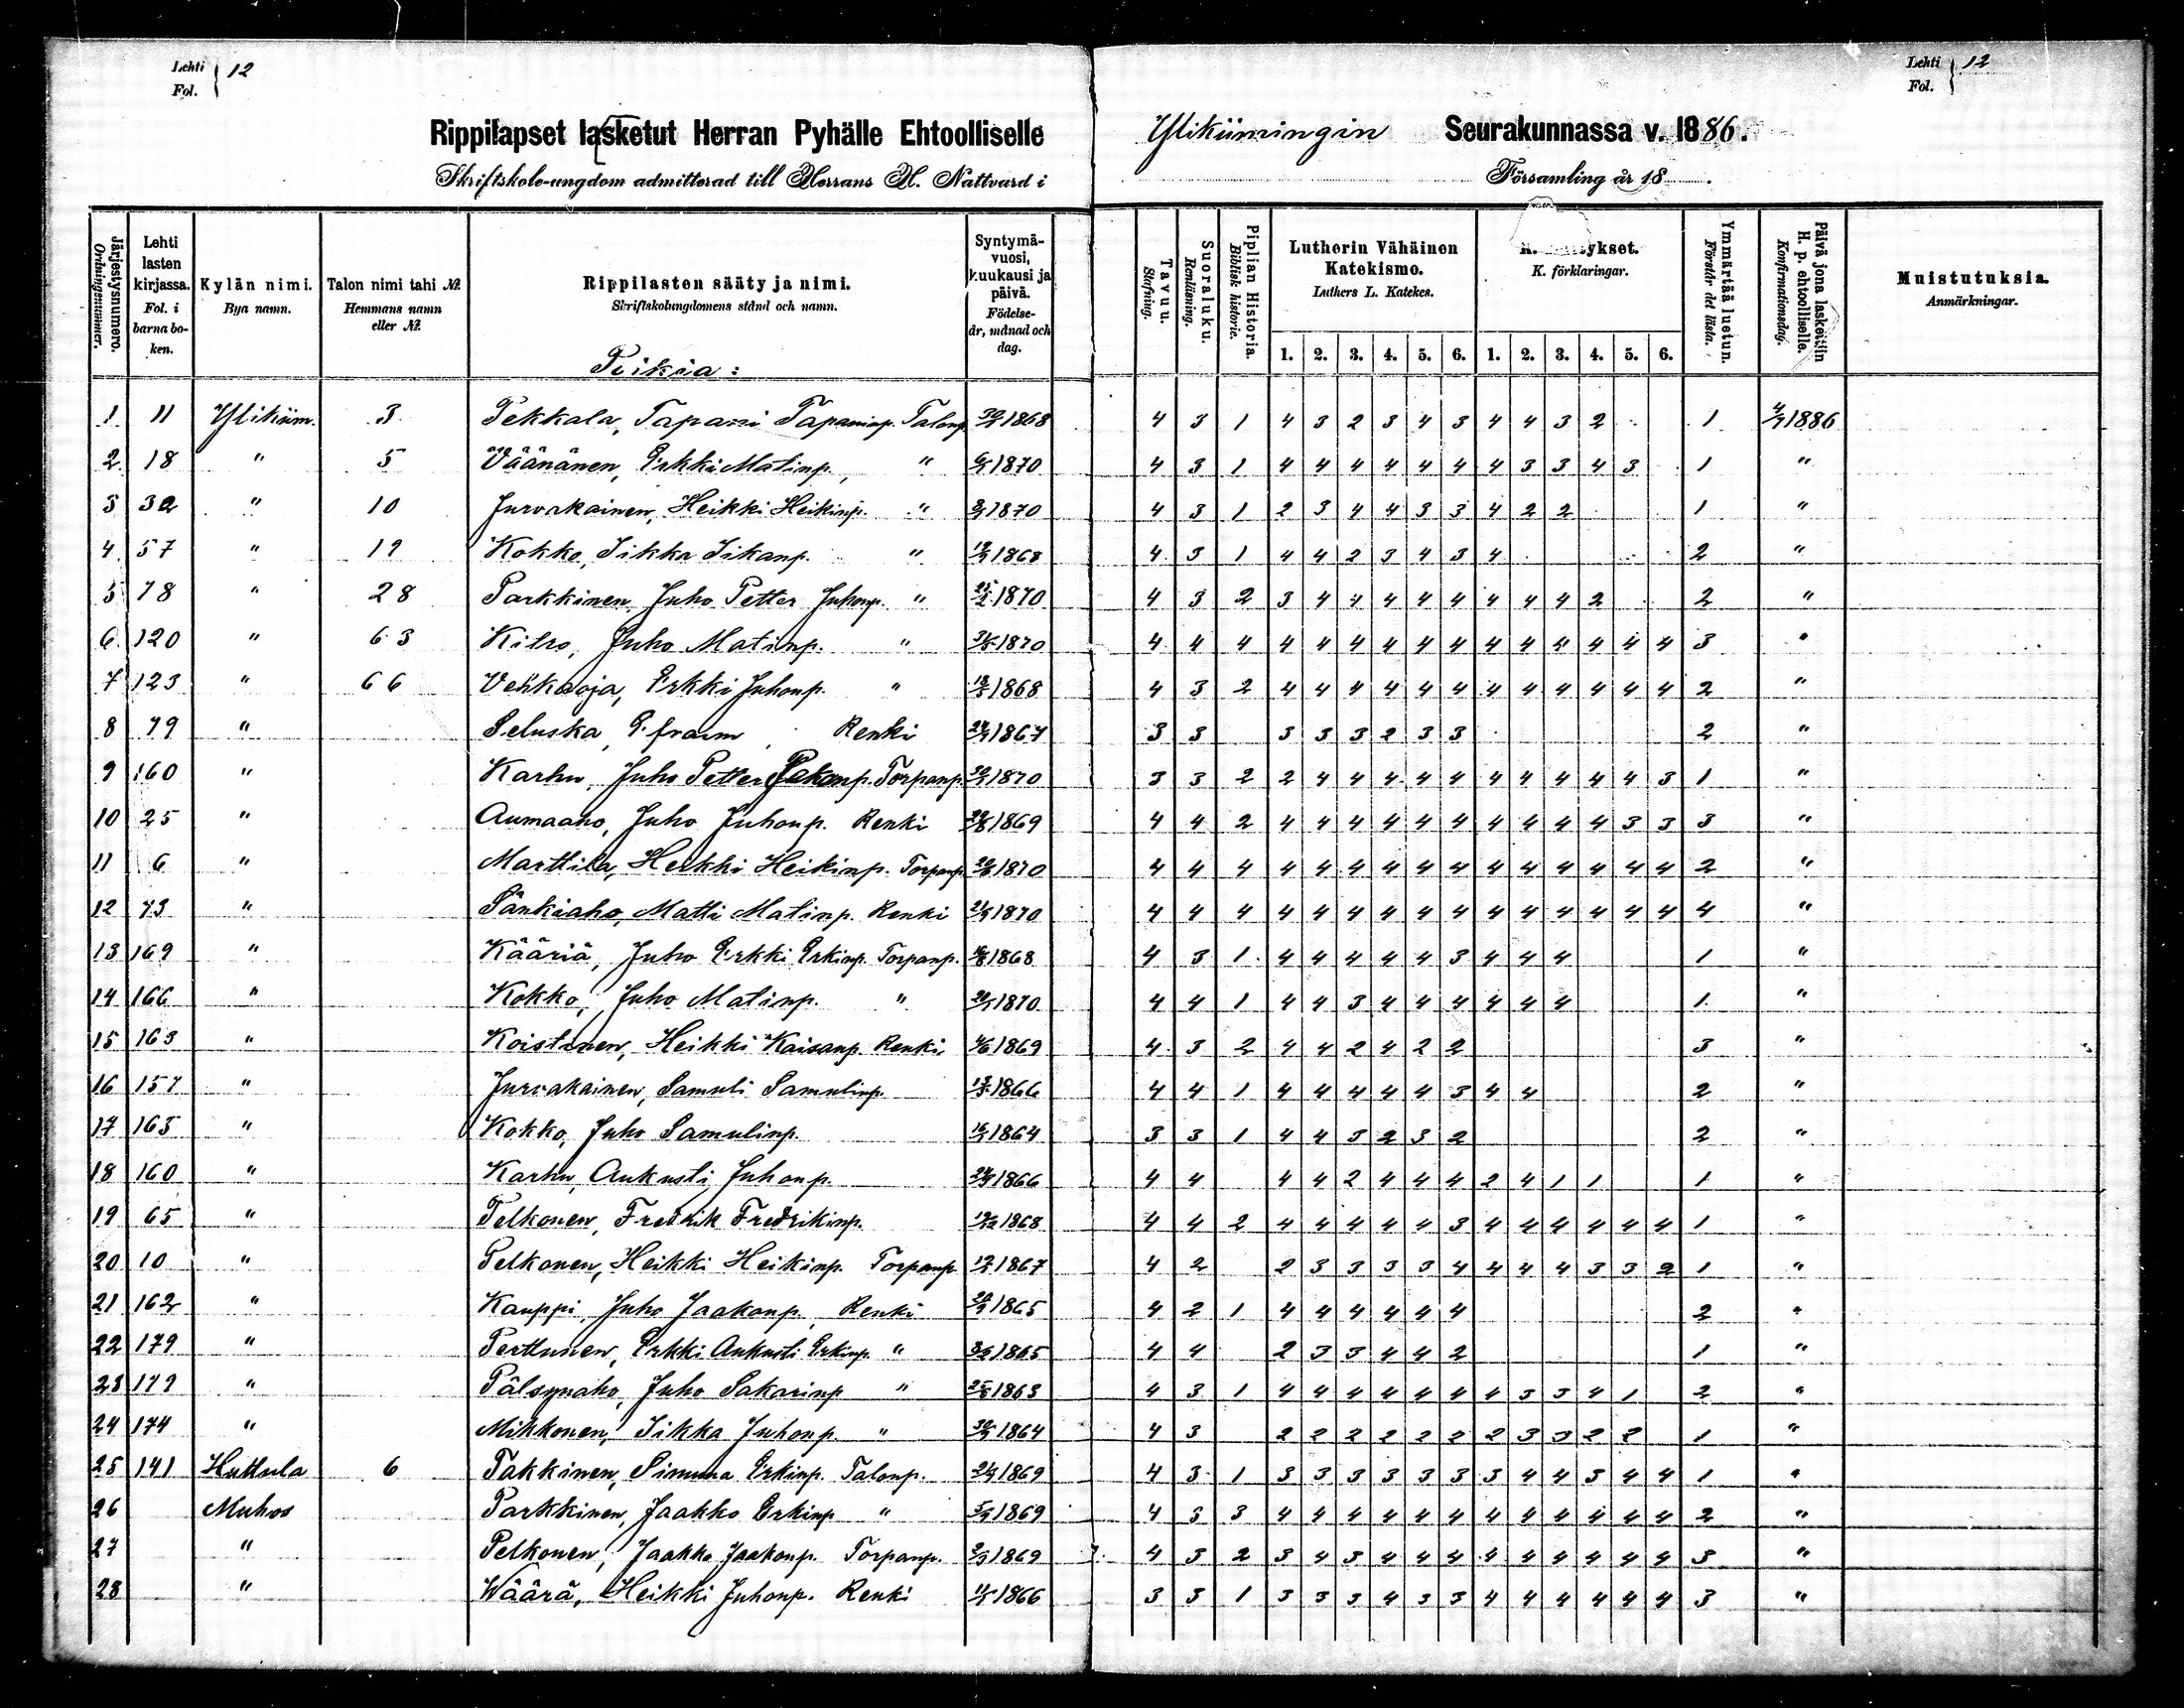 Lehti 12
Fol.
Lehti 12
Fol.
Rippilapset lasketut Herran Pyhälle Ehtoolliselle Ylikiimingin Seurakunnassa v. 1886.
Skriftskole-ungdom admitterad till Herrans H. Nattvard i Församling år 18
Järjestysnumero. Ordningsnummer.
Lehti lasten kirjassa. Fol. i barnaboken.
Kylän nimi. Bya namn.
Talon nimi tahi №. Hemmans namn eller №.
Rippilasten sääty ja nimi. Skriftskolungdomens stånd och namn.
Syntymävuosi, kuukausi ja päivä. Födelseår, månad och dag.
Tavuu. Stafning.
Suoraluku. Renläsning.
Piplian Historia. Biblisk historie.
Lutherin Vähäinen Katekismo. Luthers L. Katekes.
K. förklaringar.
Ymmärtää luetun. Förstår det lästa.
Päivä jona laskettiin H. p. ehtoolliselle. Konfirmationsdag.
Muistutuksia. Anmärkningar.
1. 2. 3. 4. 5. 6. 1. 2. 3. 4. 5. 6.
Poikia:
1 11 Ylikiim. 3 Pekkala, Tapani Tapaninp. Talonp. 1868 4 3 1 4 3 2 3 4 3 4 4 3 2 1 4/7 1886
2 18 " 5 Väänänen, Erkki Matinp., " 1870 4 3 1 4 4 4 4 4 4 4 3 3 4 3 1 "
3 32 " 10 Jurvakainen, Heikki Heikinp. " 1870 4 3 1 2 3 4 4 3 3 4 2 2 1 "
4 57 " 19 Kokko, Iikka Iikanp. " 1868 4 3 1 4 4 2 3 4 3 4 2 "
5 78 " 28 Parkkinen, Juho Petter Juhonp. " 1870 4 3 2 3 4 4 4 4 4 4 4 4 2 2 "
6 120 " 63 Kilro, Juho Matinp. " 1870 4 4 4 4 4 4 4 4 4 4 4 4 4 4 4 3 "
7 123 " 66 Vehkaoja, Erkki Juhonp. " 1868 4 3 2 4 4 4 4 4 4 4 4 4 4 4 4 2 "
8 79 " Seluska, Efraim, Renki 1867 3 3 3 3 3 2 3 3 2 "
9 160 " Karhu, Juho Petter Jakonp. Torpanp. 1870 3 3 2 2 4 4 4 4 4 4 4 4 4 4 3 1 "
10 25 " Aumaaho, Juho Juhonp. Renki 1869 4 4 2 4 4 4 4 4 4 4 4 4 4 3 3 3 "
11 6 " Marttila, Heikki Heikinp. Torpanp. 1870 4 4 4 4 4 4 4 4 4 4 4 4 4 4 4 2 "
12 73 " Sänkiaho, Matti Matinp. Renki 1870 4 4 4 4 4 4 4 4 4 4 4 4 4 4 4 4 "
13 169 " Kääriä, Juho Erkki Erkinp. Torpanp. 1868 4 3 1 4 4 4 4 4 3 4 4 4 1 "
14 166 " Kokko, Juho Matinp. " 1870 4 4 1 4 4 3 4 4 4 4 4 4 1 "
15 163 " Koistinen, Heikki Kaisanp. Renki 1869 4 3 2 4 4 2 4 2 2 3 "
16 157 " Jurvakainen, Samuli Samulinp. 1866 4 4 1 4 4 4 4 4 3 4 4 2 "
17 165 " Kokko, Juho Samulinp. 1864 3 3 1 4 4 3 2 3 2 2 "
18 160 " Karhu, Aukusti Juhonp. 1866 4 4 4 4 2 4 4 4 2 4 1 1 1 "
19 65 " Pelkonen, Fredrik Fredrikinp. 1868 4 4 2 4 4 4 4 4 3 4 4 4 4 4 4 1 "
20 10 " Pelkonen, Heikki Heikinp. Torpanp. 1867 4 2 2 3 3 3 3 4 4 4 4 3 3 2 1 "
21 162 " Kauppi, Juho Jaakonp., Renki 1865 4 2 1 4 4 4 4 4 4 2 "
22 179 " Perttunen, Erkki Aukusti Erkinp. " 1865 4 4 2 3 3 4 4 2 1 "
23 179 " Pälsynaho, Juho Sakarinp " 1863 4 3 1 4 4 4 4 4 4 4 3 3 4 1 2 "
24 174 " Mikkonen, Iikka Juhonp. " 1864 4 3 2 2 2 2 2 2 2 3 3 2 2 1 "
25 141 Huttula 6 Takkinen, Simuna Erkinp. Talonp. 1869 4 3 1 3 3 3 3 3 3 3 4 4 3 4 4 1 "
26 Muhos Parkkinen, Jaakko Erkinp " 1869 4 3 3 4 4 4 4 4 4 4 4 4 4 4 4 2 "
27 " Pelkonen, Jaakko Jaakonp. Torpanp. 1869 4 3 2 3 4 3 4 4 4 4 4 4 4 4 4 3 "
28 " Wäärä, Heikki Juhonp. Renki 1866 3 3 1 3 3 3 4 3 3 4 4 4 4 4 4 3 "